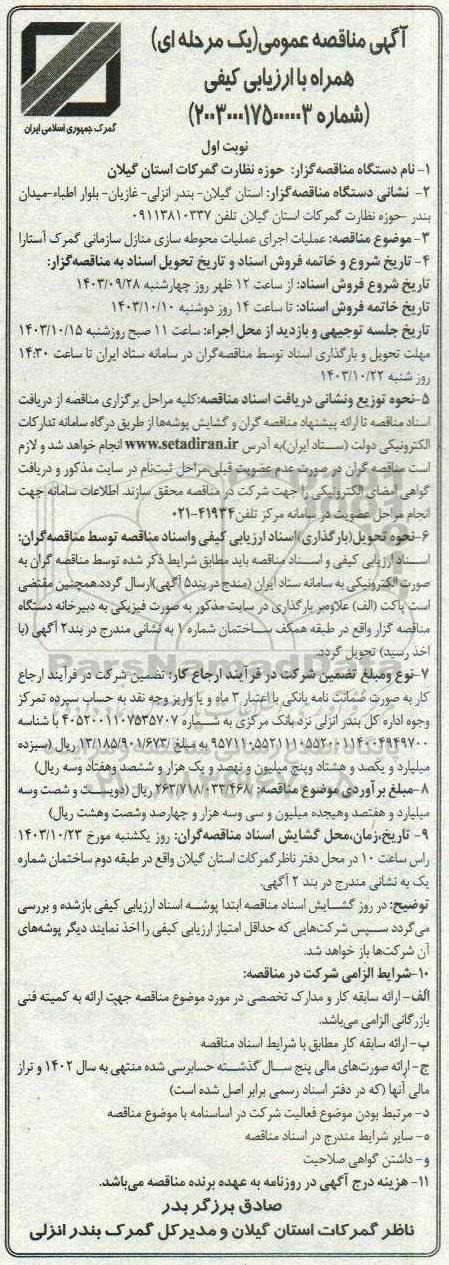 آگهی مناقصه عمومی(یک مرحله ای)
همراه با ارزیابی کیفی
(شماره ۲۰۰۳۰۰۰۱۷۵۰۰۰۰۰۳)
گمرک جمهوری اسلامی ایران
نوبت اول
۱- نام دستگاه مناقصه‌گزار: حوزه نظارت گمرکات استان گیلان
۲- نشانی دستگاه مناقصه‌گزار: استان گیلان- بندر انزلی- غازیان- بلوار اطباء-میدان
بندر -حوزه نظارت گمرکات استان گیلان تلفن ۰۹۱۱۳۸۱۰۳۳۷
۳- موضوع مناقصه: عملیات اجرای عملیات محوطه سازی منازل سازمانی گمرک آستارا
۴- تاریخ شروع و خاتمه فروش اسناد و تاریخ تحویل اسناد به مناقصه‌گزار:
تاریخ شروع فروش اسناد: از ساعت ۱۲ ظهر روز چهارشنبه ۱۴۰۳/۰۹/۲۸
تاریخ خاتمه فروش اسناد: تا ساعت ۱۴ روز دوشنبه ۱۴۰۳/۱۰/۱۰
تاریخ جلسه توجیهی و بازدید از محل اجراء: ساعت ۱۱ صبح روزشنبه ۱۴۰۳/۱۰/۱۵
مهلت تحویل و بارگذاری اسناد توسط مناقصه‌گران در سامانه ستاد ایران تا ساعت ۱۴:۳۰
روز شنبه ۱۴۰۳/۱۰/۲۲
۵-نحوه توزیع ونشانی دریافت اسناد مناقصه:کلیه مراحل برگزاری مناقصه از دریافت
اسناد مناقصه تا ارائه پیشنهاد مناقصه گران و گشایش پوشه‌ها از طریق درگاه سامانه تدارکات
الکترونیکی دولت (ستاد ایران)به آدرس www.setadiran.ir انجام خواهد شد و لازم
است مناقصه گران در صورت عدم عضویت قبلی،مراحل ثبت‌نام در سایت مذکور و دریافت
گواهی امضای الکترونیکی را جهت شرکت در مناقصه محقق سازند. اطلاعات سامانه جهت
انجام مراحل عضویت در سامانه مرکز تلفن ۴۱۹۳۴-۰۲۱
۶-نحوه تحویل(بارگذاری)اسناد ارزیابی کیفی واسناد مناقصه توسط مناقصه‌گران:
اسناد ارزیابی کیفی و اسناد مناقصه باید مطابق شرایط ذکر شده توسط مناقصه گران به
صورت الکترونیکی به سامانه ستاد ایران (مندج در بند۵ آگهی)ارسال گردد.همچنین مقتضی
است پاکت (الف) علاوه‌بر بارگذاری در سایت مذکور به صورت فیزیکی به دبیرخانه دستگاه
مناقصه گزار واقع در طبقه همکف ساختمان شماره ۱ به نشانی مندرج در بند۲ آگهی (با
اخذ رسید) تحویل گردد.
۷-نوع ومبلغ تضمین شرکت در فرآیند ارجاع کار: تضمین شرکت در فرآیند ارجاع
کار به صورت ضمانت نامه بانکی با اعتبار ۳ ماه و یا واریز وجه نقد به حساب سپرده تمرکز
وجوه اداره کل بندر انزلی نزد بانک مرکزی به شماره ۴۰۵۲۰۰۱۱۰۷۵۳۵۷۰۷ با شناسه
۹۵۷۱۱۰۵۵۲۱۱۱۰۵۵۲۰۰۱۱۴۰۰۴۹۴۹۷۰۰ به مبلغ ۱۳/۱۸۵/۹۰۱/۶۷۳/ ریال (سیزده
میلیارد و یکصد و هشتاد وپنج میلیون و نهصد و یک هزار و ششصد وهفتاد وسه ریال)
۸-مبلغ برآوردی موضوع مناقصه: ۲۶۳/۷۱۸/۰۳۳/۴۶۸/ ریال (دویست و شصت وسه
میلیارد و هفتصد وهیجده میلیون و سی وسه هزار و چهارصد وشصت وهشت ریال)
۹- تاریخ،زمان،محل گشایش اسناد مناقصه‌گران: روز یکشنبه مورخ ۱۴۰۳/۱۰/۲۳
راس ساعت ۱۰ در محل دفتر ناظرگمرکات استان گیلان واقع در طبقه دوم ساختمان شماره
یک به نشانی مندرج در بند ۲ آگهی.
توضیح: در روز گشایش اسناد مناقصه ابتدا پوشه اسناد ارزیابی کیفی بازشده و بررسی
می‌گردد سپس شرکت‌هایی که حداقل امتیاز ارزیابی کیفی را اخذ نمایند دیگر پوشه‌های
آن شرکت‌ها باز خواهد شد.
۱۰-شرایط الزامی شرکت در مناقصه:
الف- ارائه سابقه کار و مدارک تخصصی در مورد موضوع مناقصه جهت ارائه به کمیته فنی
بازرگانی الزامی می‌باشد.
ب- ارائه سابقه کار مطابق با شرایط اسناد مناقصه
ج- ارائه صورت‌های مالی پنج سال گذشته حسابرسی شده منتهی به سال ۱۴۰۲ و تراز
مالی آنها (که در دفتر اسناد رسمی برابر اصل شده است)
د- مرتبط بودن موضوع فعالیت شرکت در اساسنامه با موضوع مناقصه
ه- سایر شرایط مندرج در اسناد مناقصه
و- داشتن گواهی صلاحیت
۱۱- هزینه درج آگهی در روزنامه به عهده برنده مناقصه می‌باشد.
صادق برزگر بدر
ناظر گمرکات استان گیلان و مدیرکل گمرک بندر انزلی
ParsNamadData